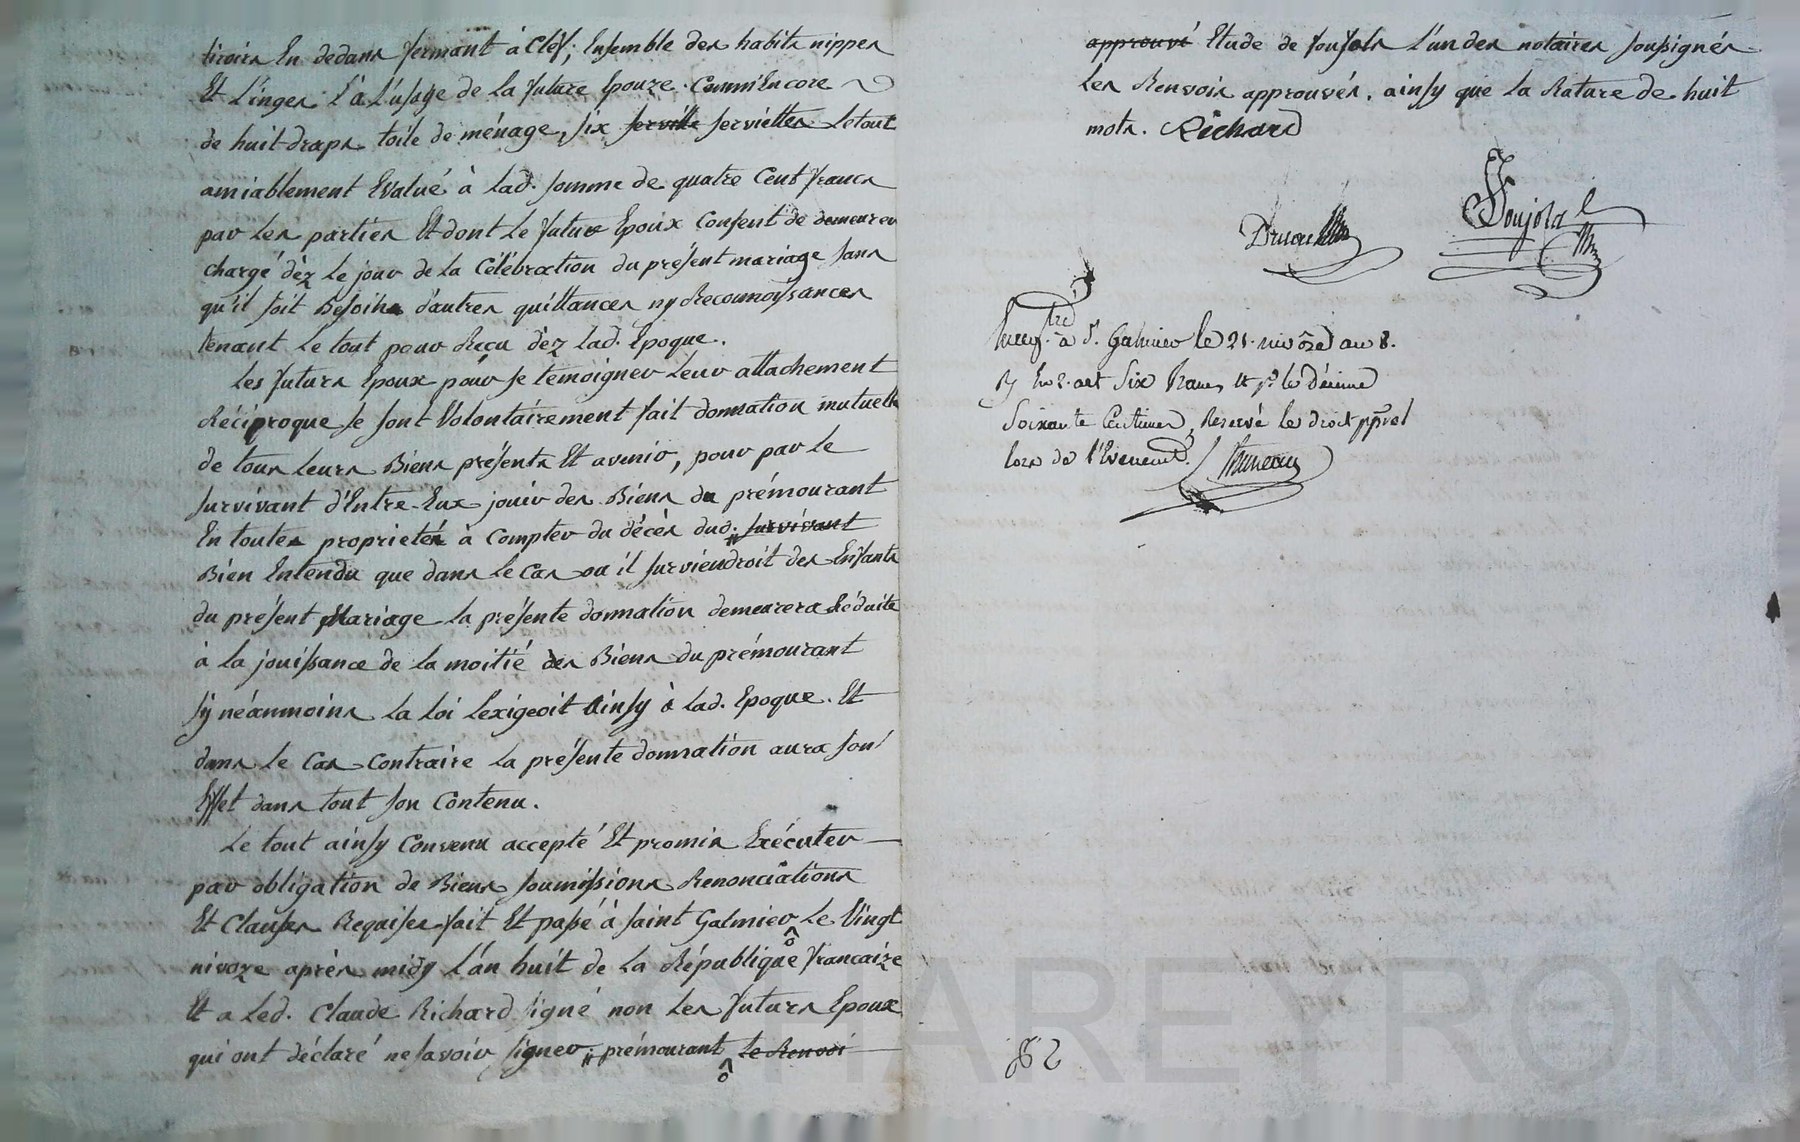 tiroirs En dedans fermant à Clef; Ensemble des habits nippes
Et Linges à L'usage de la future Epouze. Comm'Encore
de huit draps toile de ménage, six serville serviettes Letout
amiablement Evalué à lad. somme de quatre Cent francs
par les parties Et dont Le futur Epoux Consent de demeurer
chargé dèz Le jour de la Célébration du présent mariage sans
qu'il soit Besoin d'autres quittances ny Reconnoissances
tenant Le tout pour Recu dèz Lad. Epoque.
Les futurs Epoux pour se témoigner Leur attachement
Réciproque se sont Volontairement fait donnation mutuelle
de tous Leurs Biens présents Et avenir, pour par Le
survivant d'Entre-Eux jouir des Biens du prémourant
En toutes proprietés à Compter du décès dud. survivant
Bien Entendu que dans Le Cas ou il surviendroit des Enfants
du présent Mariage La présente donnation demeurera Réduite
à la jouissance de la moitié des Biens du prémourant
sy néanmoins La Loi Lexigeoit Ainsy à Lad. Epoque. Et
dans Le Cas Contraire La présente donnation aura son
Effet dans tout son Contenu.
Le tout ainsy Convenu accepté Et promis Exécuter
par obligation de Biens soumissions Renonciations
Et Clauses Requises fait Et passé à Saint Galmier Le Vingt
nivoze après midy L'an huit de La République francaize
Et a Led. Claude Richard signé non Les futurs Epoux
qui ont déclaré ne savoir signer, prémourant Le Renvoi
approuvé Etude de Soujols L'un des notaires soussignés
Les Renvois approuvés, ainsy que la Rature de huit
mots. Richard
Soujols
à St. Galmier le 21 nivôse an 8.
six francs et pr. le décime
Soixante Centimes, Reservé le droit pprel
lors de l'Evenemt.
CHAREYRON